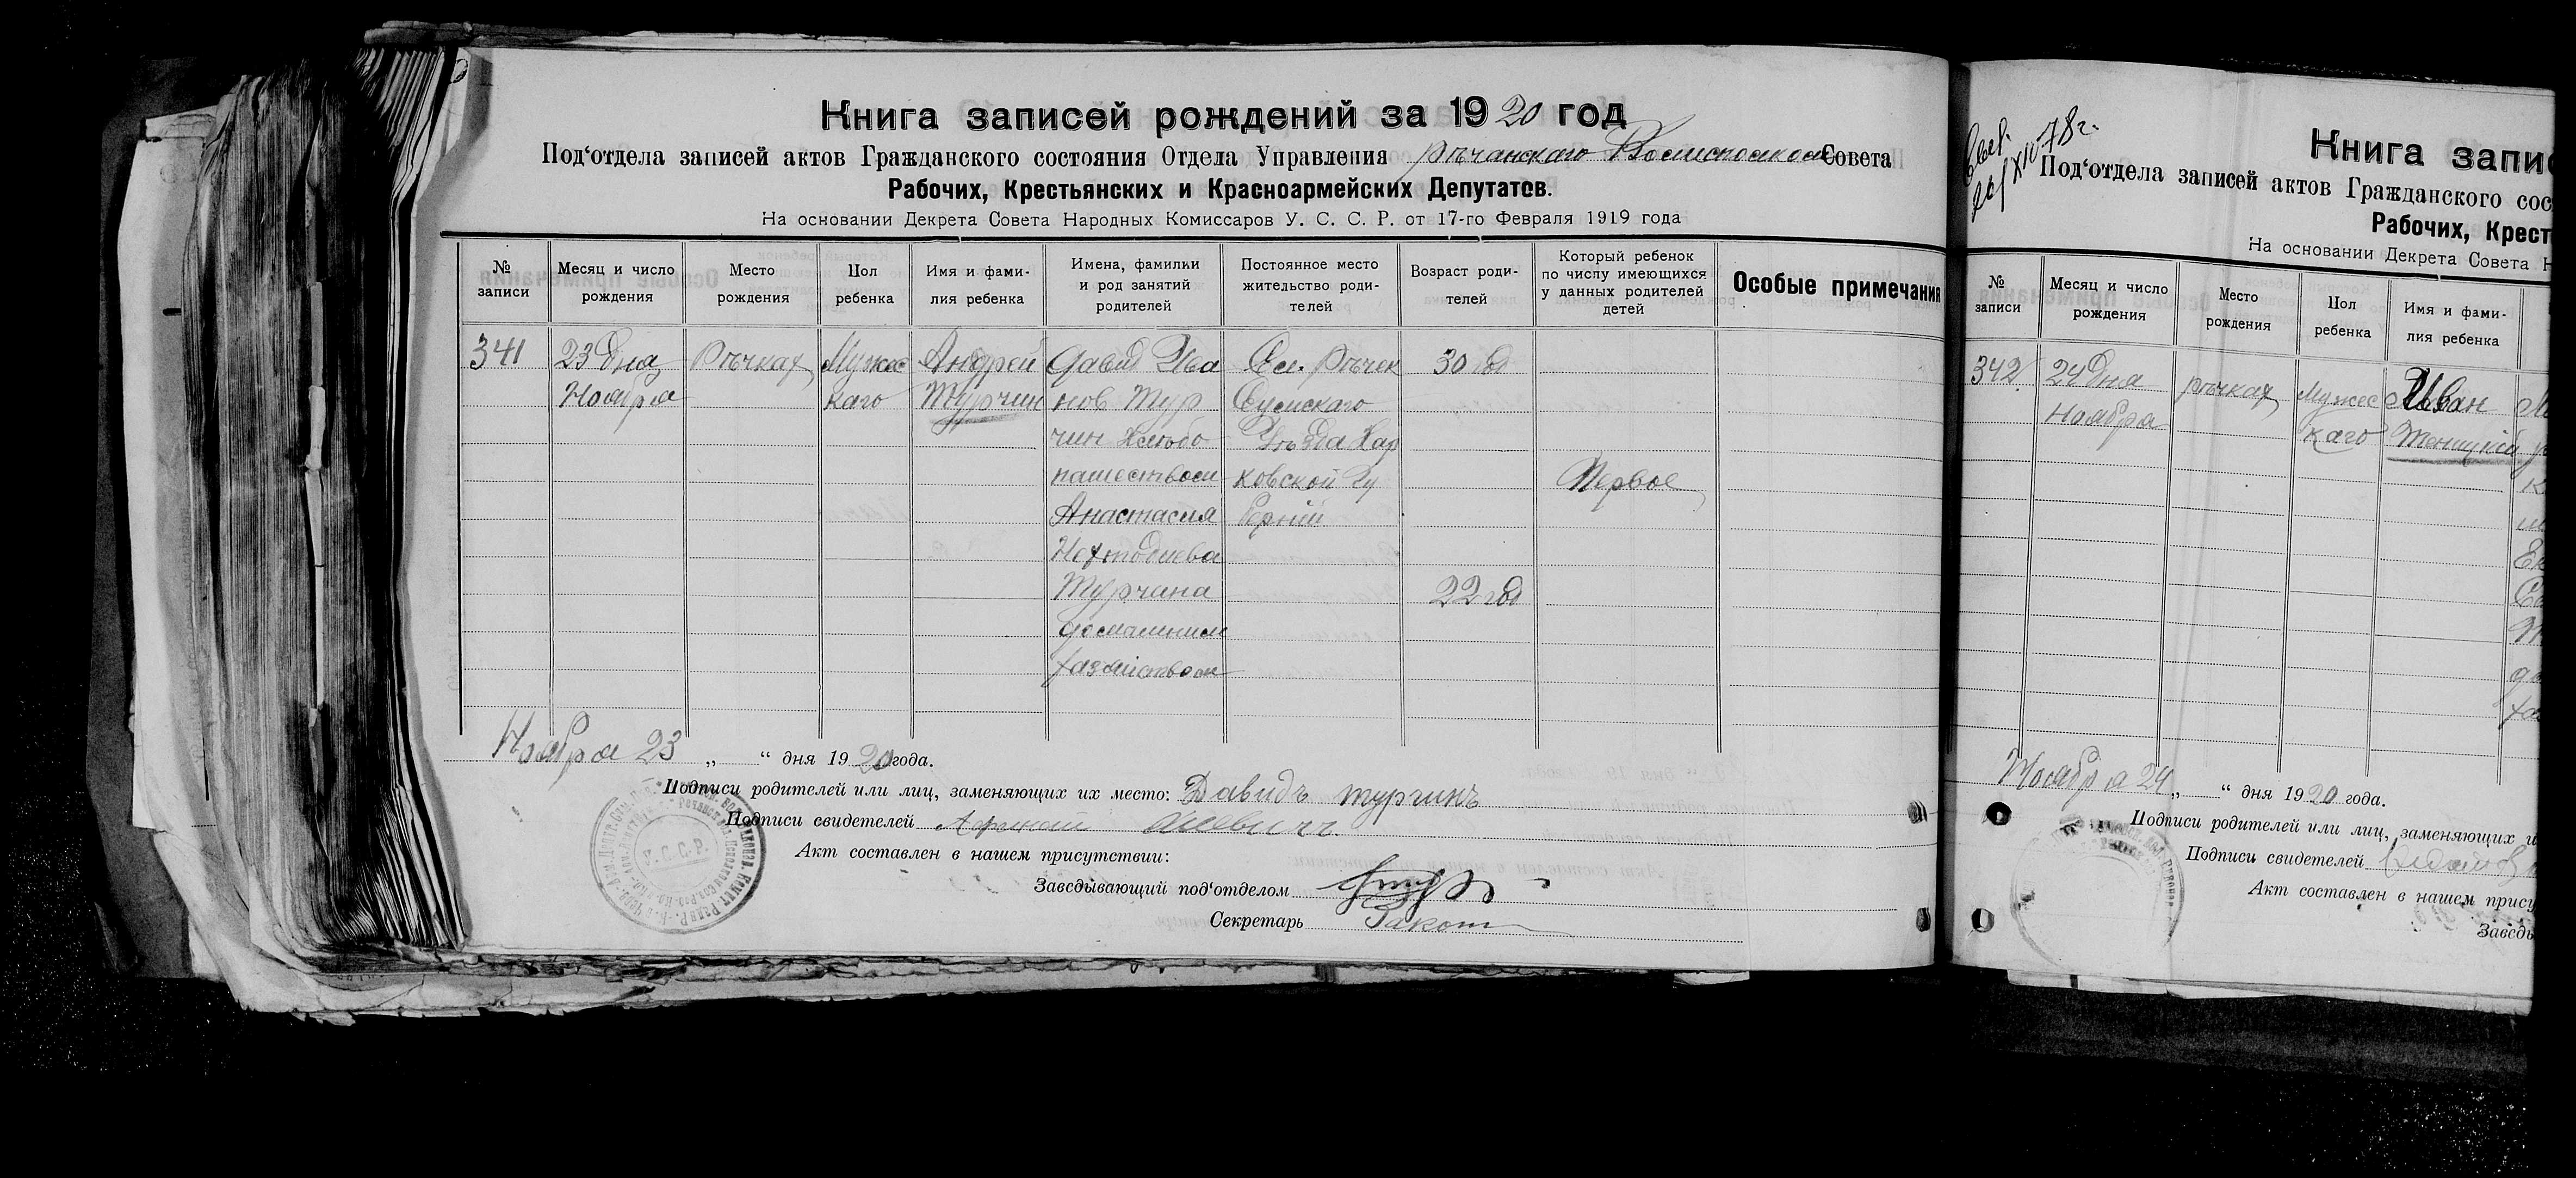 Книга записей рождений за 1920 год
Под‘отдела записей актов Гражданского состояния Отдела Управления Ръчанскаго Совета
Рабочих, Крестьянских и Красноармейских Депутатов.
На основании Декрета Совета Народных Комиссаров У. С. С. Р. от 17-го Февраля 1919 года
№ записи
Месяц и число рождения
Место рождения
Пол ребенка
Имя и фами-
лия ребенка
Имена, фамилии
и род занятий
родителей
Постоянное место
жительство роди-
телей
Возраст роди-
телей
Который ребенок
по числу имеющихся
у данных родителей
детей
Особые примечания
341 23 дня Ръчках Мужес Андрей Давид Ива Сел. Ръчек 30 год
Ноября каго Турчин нов Тур Сумскаго
чин Хлебо Уъзда Хар
пашеством ковской Гу Первое
Анастасия бернии
Турчина 22 год
домашним
хазяйством
Ноября 23 „ “ дня 1920 года.
Подписи родителей или лиц, заменяющих их место: Давидъ Турчинъ
Подписи свидетелей
Акт составлен в нашем присутствии:
Заведывающий под‘отделом
Секретарь
У. С. С. Р.
Книга запис
Под‘отдела записей актов Гражданского сос
Рабочих, Крест
На основании Декрета Совета Н
№
записи
Месяц и число
рождения
Место
рождения
Пол
ребенка
Имя и фами-
лия ребенка
342 24 дня ръчках Мужес Иван
Ноября каго
Ноября 24 „ “ дня 1920 года.
Подписи родителей или лиц, заменяющих и
Подписи свидетелей
Акт составлен в нашем прису
Заведы